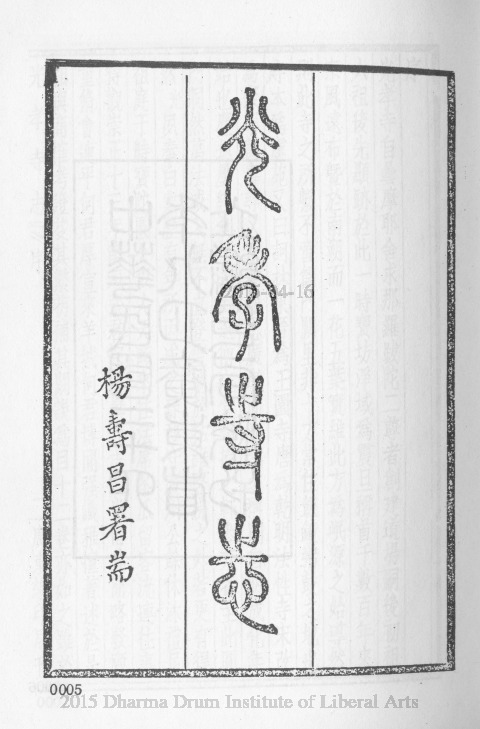 光孝寺志
楊壽昌署耑
0005
2015 Dharma Drum Institute of Liberal Arts